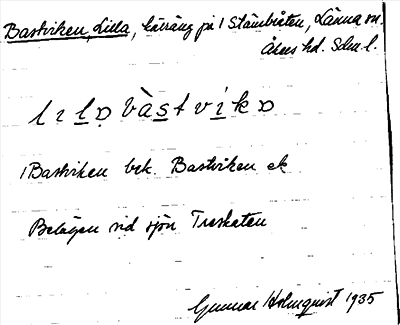 Bastviken, Lilla, kärräng på 1 Stämbråten, Länna sn.
Åkers hd. Sdm l.
lılꭤ bàstvikꭤ
1 Bastviken bek. Bastviken ek
Belägen vid sjön Treskaten
Gunnar Holmquist 1935